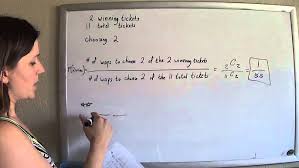 2 winning tickets
11 total tickets
Choosing 2
# of ways to choose 2 of the 2 winning tickets
# of ways to choose 2 of the 11 total tickets
= 2C2
= 1
55